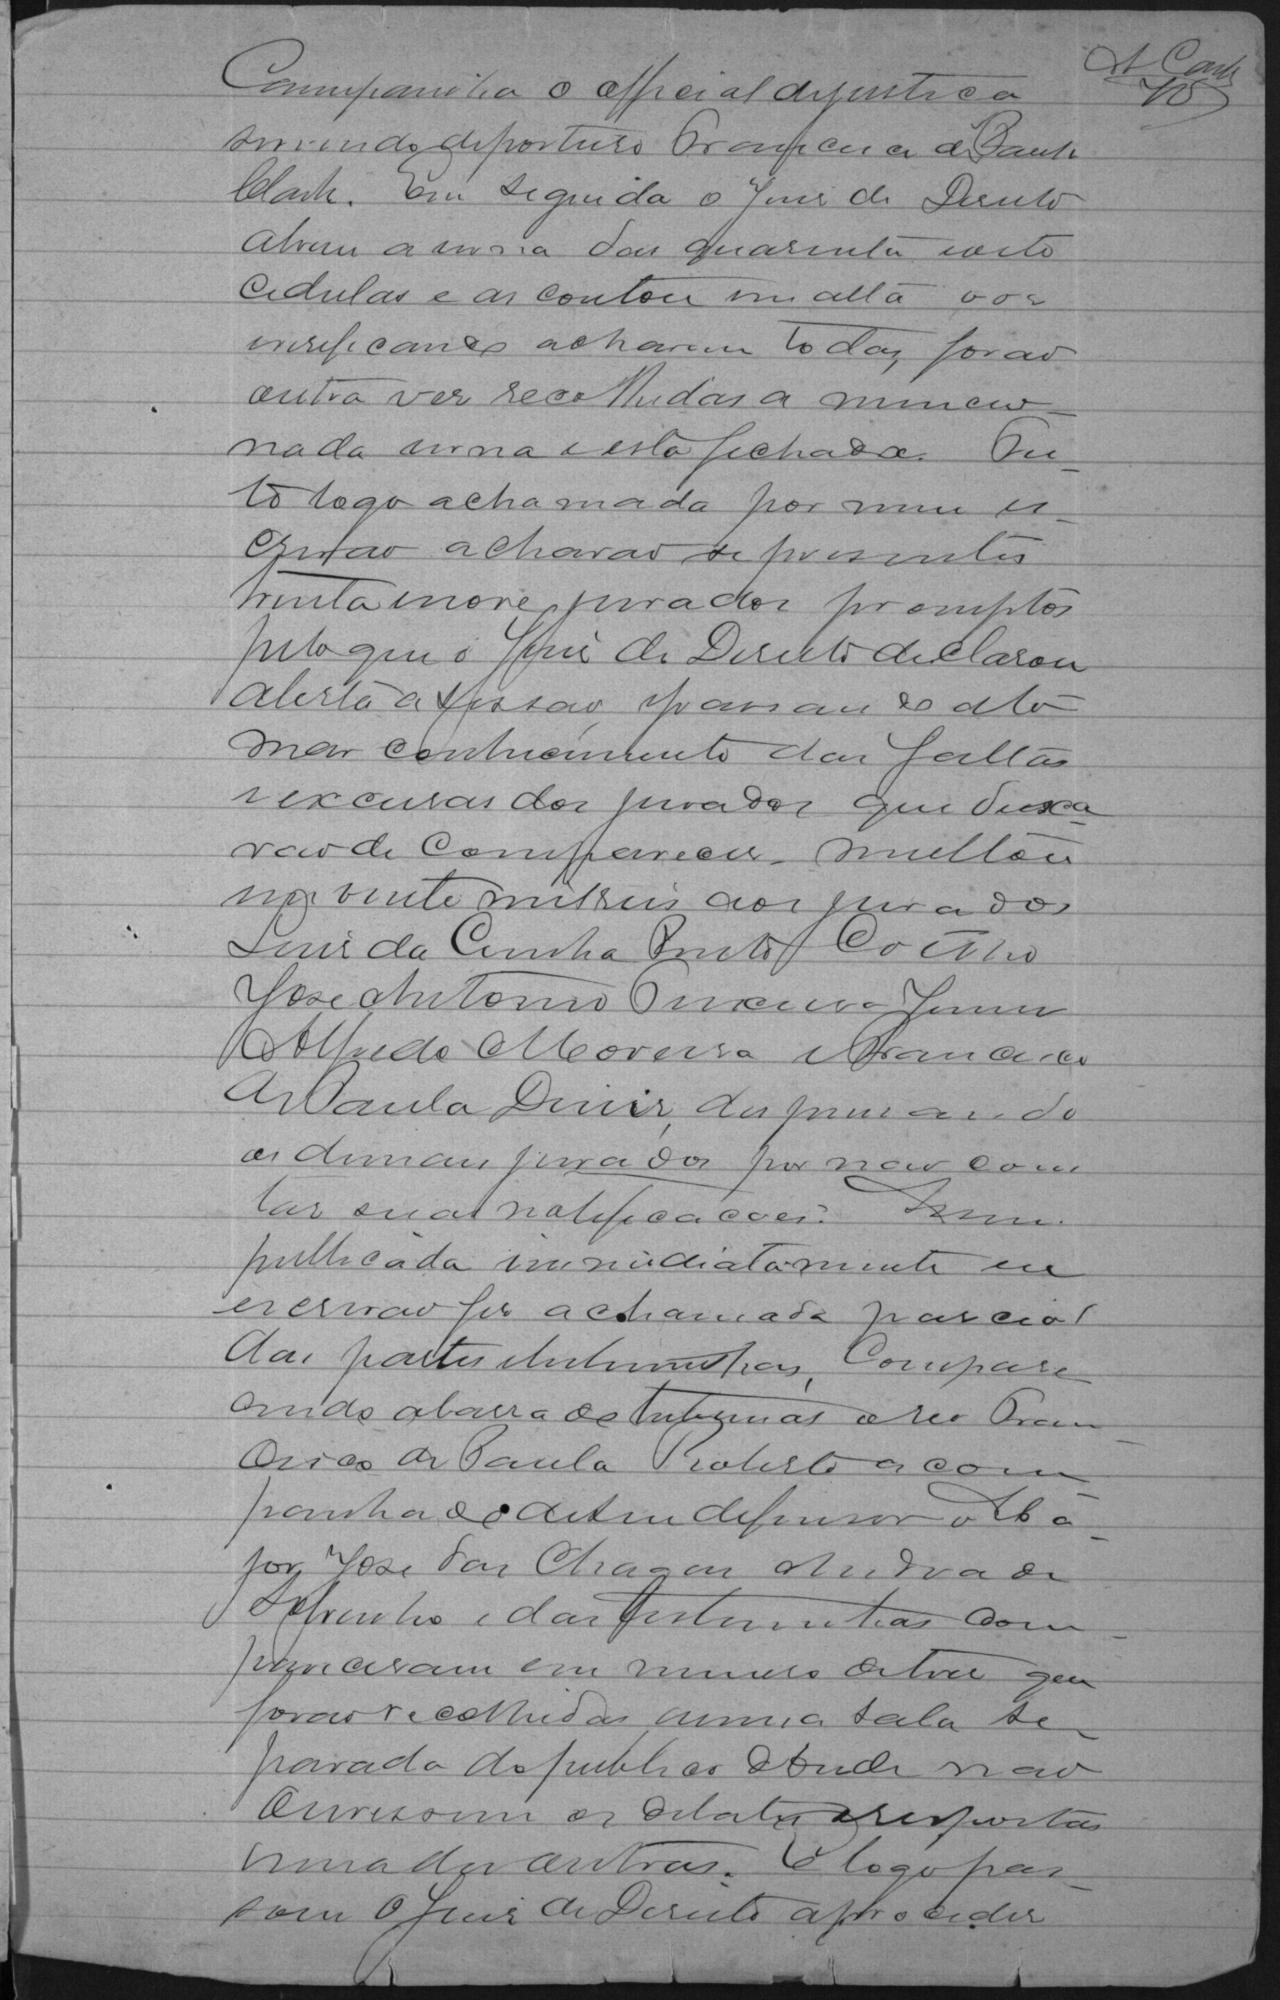 Campainha o official de justiça
servindo de porteiro Francisco de Paula
Clark. Em seguida o Juiz de Direito
abriu a urna das quarenta e oito
cedulas e as contou em alta voz
verificando acharem todas, forão
outra vez recolhidas a mencio-
nada urna e esta fechada. Fei-
to logo a chamada por mim es-
crivão acharão se presentes
trinta e nove jurados promptos
pelo que o Juiz de Direito declarou
aberta a sessão, passando a to-
mar conhecimento das faltas
e excusas dos jurados que deixa-
rão de comparecer. Multou
em vinte mil reis aos jurados
Luiz da Cunha Pinto Coelho
José Antonio Junior
Alfredo Moreira e Francisco
de Paula Diniz, dispensando
os demais jurados por não cons
tar suas notificacões.
publicada immediatamente eu
escrivão fiz a chamada parcial
das partes e testemunhas, Compare
cendo a barra do tribunal o reo Fran-
cisco de Paula Roberto acom-
panhado de seu defensor o
por José das Chagas Andrade
Sobrinho e das testemunhas com-
pareceram em numero de tres que
forão recolhidas numa sala se-
parada do publico donde não
ouvissem os debates e respostas
umas das outras. E logo pas-
sou o Juiz de Direito a proceder